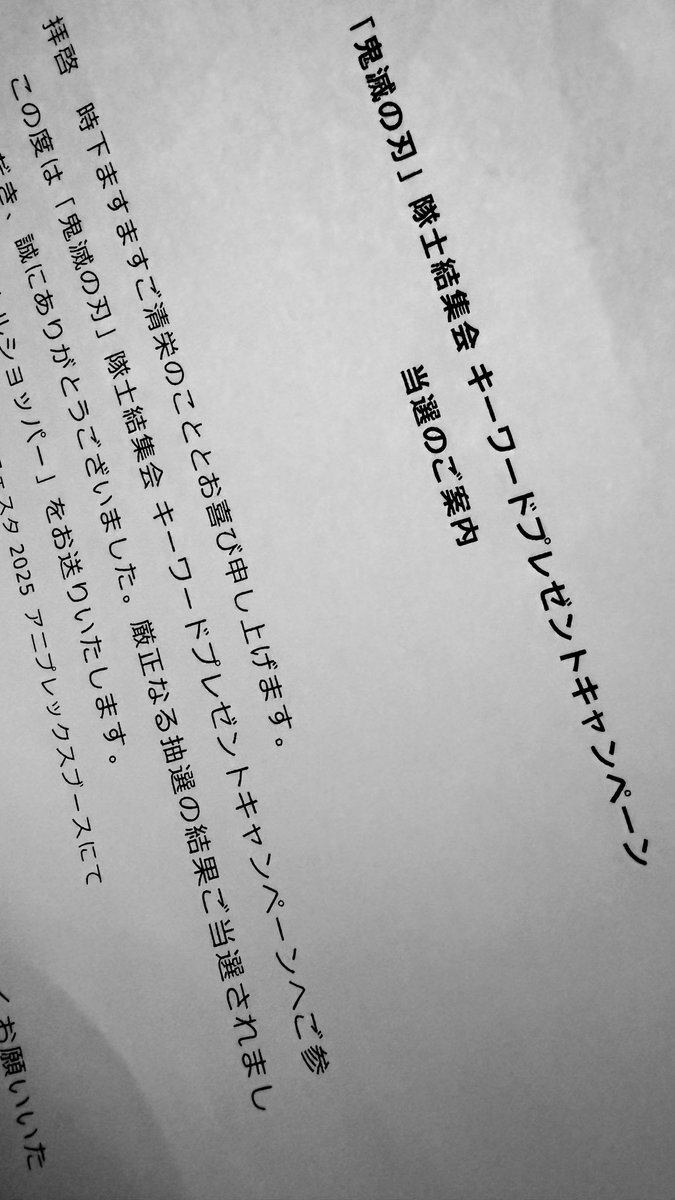 「鬼滅の刃」隊士結集会 キーワードプレゼントキャンペーン
当選のご案内
拝啓 時下ますますご清栄のこととお喜び申し上げます。
この度は「鬼滅の刃」隊士結集会 キーワードプレゼントキャンペーンへご参
だき、誠にありがとうございました。厳正なる抽選の結果ご当選されまし
ルショッパー」をお送りいたします。
エスタ 2025 アニプレックスブースにて
お願いいた